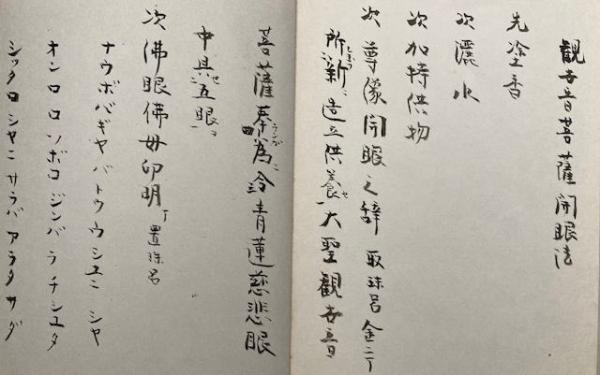 観世音菩薩開眼法
先塗香
次灑水
次加持供物
次尊像開眼之辞 取珠呂金二丁
所新造立供養セ大聖観世音
菩薩奉為 青蓮慈悲眼
中具セコ五眼
次佛眼佛母印明 置珠呂
ナウボバギヤバトウウシユニシヤ
オンロロソボロジンバラチシユタ
シツタロシヤニサラバアラタサダ